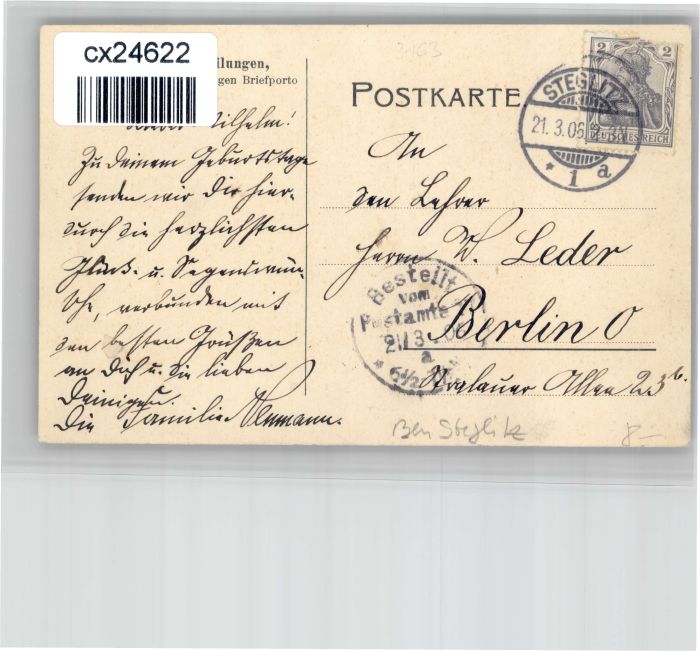 cx24622
3163
ilungen,
gen Briefporto
POSTKARTE
2 2
DEUTSCHES REICH
STEGLITZ
21.3.06
* 1 a
ilhelm!
Zu Deinem Geburtstage
senden wir Dir hier-
durch die herzlichsten
Glück- u. Segenswün-
sche, verbunden mit
den besten Grüßen
an Dich u. die lieben
Deinigen.
Die Familie
An
den Lehrer
Herrn W. Leder
Berlin O
Stralauer Allee 23b.
Bestellt
vom
Postamte
21/3
a
* 6½
Steglitz
8.-